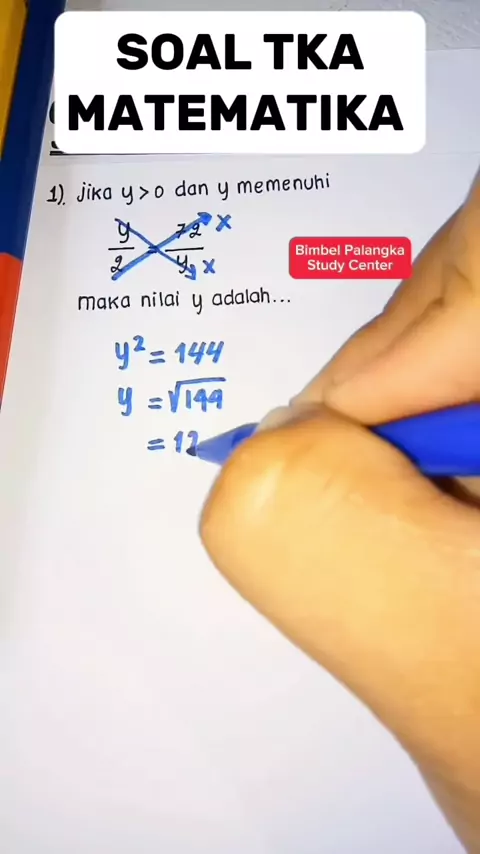 SOAL TKA
MATEMATIKA
1). Jika y > 0 dan y memenuhi
y/2 = 72/y
x
x
Bimbel Palangka
Study Center
maka nilai y adalah...
y² = 144
y = √144
= 12